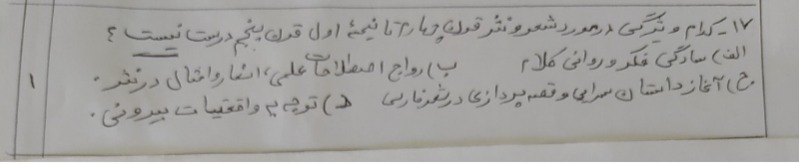 ۱۷- کدام ویژگی درمورد شعر و نثر قرن چهارم تا نیمهٔ اول قرن پنجم درست نیست ؟
الف) سادگی فکر و روانی کلام ب) رواج اصطلاحات علمی، اشعار و امثال در نثر .
ج) آغاز داستان سرایی و قصه پردازی در شعر فارسی د) توجه به واقعیات بیرونی .
۱